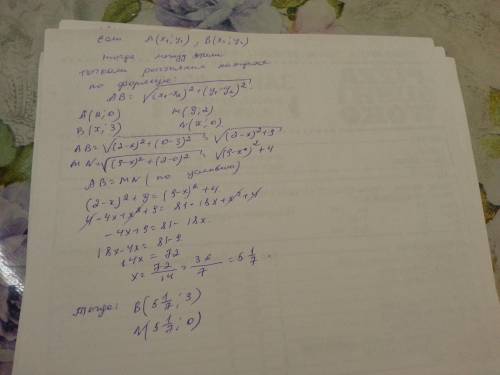 Если A(x₁; y₁), B(x₂; y₂)
тогда между этими
точками расстояния находится
по формуле:
AB = √(x₁-x₂)²+(y₁-y₂)²
A(2; 0) M(9; 2)
B(x; 3) N(x; 0)
AB = √(2-x)²+(0-3)² = √(2-x)²+9
MN = √(9-x)²+(2-0)² = √(9-x)²+4
AB = MN (по условию)
(2-x)²+9 = (9-x)²+4
4-4x+x²+9 = 81-18x+x²+4
-4x+9 = 81-18x
18x-4x = 81-9
14x = 72
x = 72/14 = 36/7 = 5 1/7
тогда: B(5 1/7; 3)
N(5 1/7; 0)